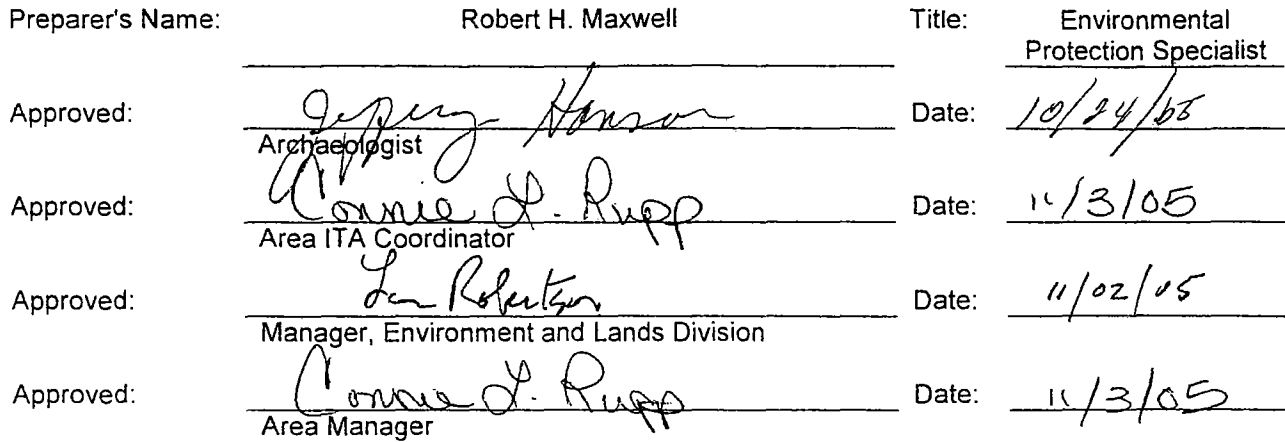 Preparer's Name: Robert H. Maxwell Title: Environmental
Protection Specialist
Approved: Jeffery Hanson Date: 10/24/05
Archaeologist
Approved: Connie L. Rupp Date: 11/3/05
Area ITA Coordinator
Approved: Robertson Date: 11/02/05
Manager, Environment and Lands Division
Approved: Connie L. Rupp Date: 11/3/05
Area Manager